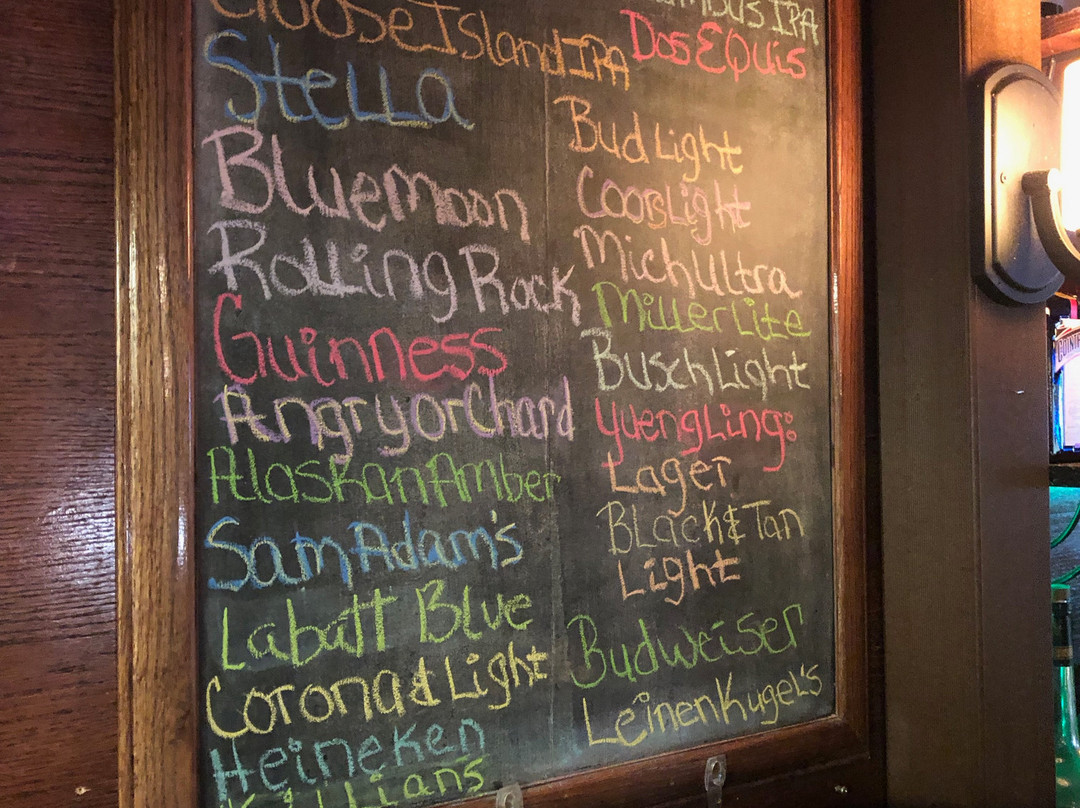 Goose Island IPA
Stella
Bluemoon
Rolling Rock
Guinness
Angry orChard
Alaskan Amber
Sam Adam's
Labatt Blue
Corona & Light
Heineken
Killians
IPA
Dos EQuis
Bud Light
Coors Light
Mich Ultra
Miller Lite
Busch Light
Yuengling:
Lager
Black & Tan
Light
Budweiser
Leinenkugel's